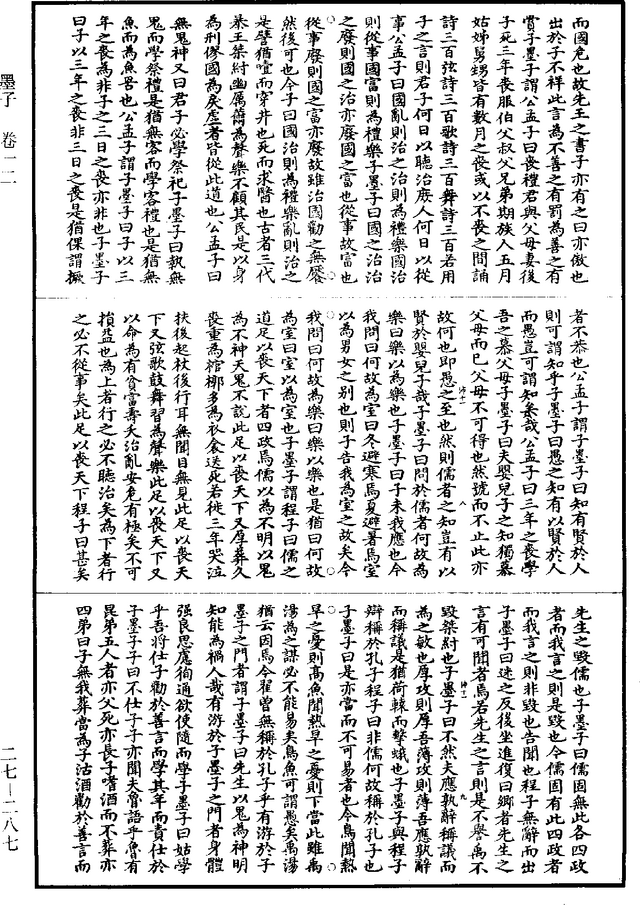 而國危也故先王之書子亦有之曰亓傲也
出於子不祥此言為不善之有罰為善之有
賞子墨子謂公孟子曰喪禮君與父母妻後
子死三年喪服伯父叔父兄弟期族人五月
姑姊舅甥皆有數月之喪或以不喪之間誦
詩三百弦詩三百歌詩三百舞詩三百若用
子之言則君子何日以聽治庶人何日以從
事公孟子曰國亂則治之治則為禮樂國治
則從事國富則為禮樂子墨子曰國之治治
之廢則國之治亦廢國之富也從事故富也
從事廢則國之富亦廢故雖治國勸之無饜
然後可也今子曰國治則為禮樂亂則治之
是譬猶噎而穿井也死而求醫也古者三代
暴王桀紂幽厲薾為聲樂不顧其民是以身
為刑僇國為戾虛者皆從此道也公孟子曰
無鬼神又曰君子必學祭祀子墨子曰執無
鬼而學祭禮是猶無客而學客禮也是猶無
魚而為魚罟也公孟子謂子墨子曰子以三
年之喪為非子之三日之喪亦非也子墨子
曰子以三年之喪非三日之喪是猶倮謂撅
者不恭也公孟子謂子墨子曰知有賢於人
則可謂知乎子墨子曰愚之知有以賢於人
而愚豈可謂知矣哉公孟子曰三年之喪學
吾之慕父母子墨子曰夫嬰兒子之知獨慕
父母而已父母不可得也然號而不止此亦
故何也即愚之至也然則儒者之知豈有以
賢於嬰兒子哉子墨子曰問於儒者何故為
樂曰樂以為樂也子墨子曰子未我應也今
我問曰何故為室曰冬避寒焉夏避暑焉室
以為男女之別也則子告我為室之故矣今
我問曰何故為樂曰樂以樂也是猶曰何故
為室曰室以為室也子墨子謂程子曰儒之
道足以喪天下者四政焉儒以為不明以鬼
為不神天鬼不說此足以喪天下又厚葬久
喪重為棺槨多為衣衾送死若徙三年哭泣
扶後起杖後行耳無聞目無見此足以喪天
下又弦歌鼓舞習為聲樂此足以喪天下又
以命為有貧富壽夭治亂安危有極矣不可
損益也為上者行之必不聽治矣為下者行
之必不從事矣此足以喪天下程子曰甚矣
先生之毀儒也子墨子曰儒固無此各四政
者而我言之則是毀也今儒固有此四政者
而我言之則非毀也告聞也程子無辭而出
子墨子曰迷之反後坐進復曰鄉者先生之
言有可聞者焉若先生之言則是不譽禹不
毀桀紂也子墨子曰不然夫應孰辭稱議而
為之敏也厚攻則厚吾薄攻則薄吾應孰辭
而稱議是猶荷轅而擊蛾也子墨子與程子
辯稱於孔子程子曰非儒何故稱於孔子也
子墨子曰是亦當而不可易者也今鳥聞熱
旱之憂則高魚聞熱旱之憂則下當此雖禹
湯為之謀必不能易矣鳥魚可謂愚矣禹湯
猶云因焉今翟曾無稱於孔子乎有游於子
墨子之門者謂子墨子曰先生以鬼為神明
知能為禍人哉有游於子墨子之門者身體
强良思慮徇通欲使隨而學子墨子曰姑學
乎吾將仕子勸於善言而學其年而責仕於
子墨子子曰不仕子子亦聞夫魯語乎魯有
昆弟五人者亦父死亦長子嗜酒而不葬亦
四弟曰子無我葬當為子沽酒勸於善言而
墨子 卷一二
二七—二八七